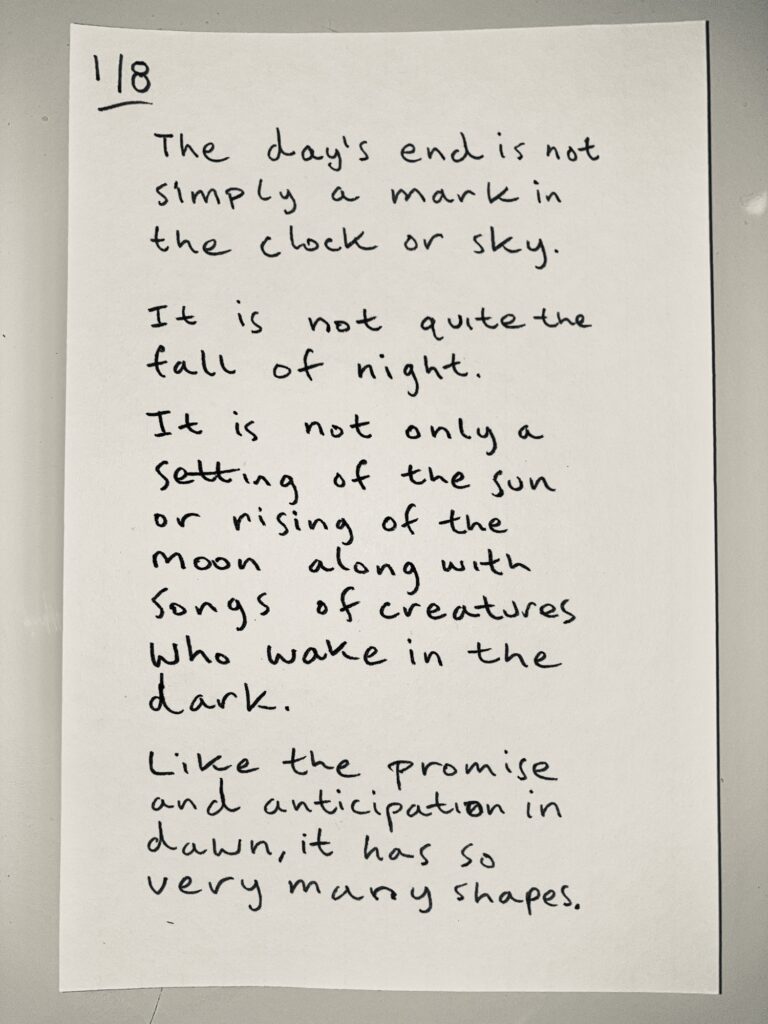 1/8
The day's end is not
simply a mark in
the clock or sky.
It is not quite the
fall of night.
It is not only a
setting of the sun
or rising of the
moon along with
songs of creatures
who wake in the
dark.
Like the promise
and anticipation in
dawn, it has so
very many shapes.